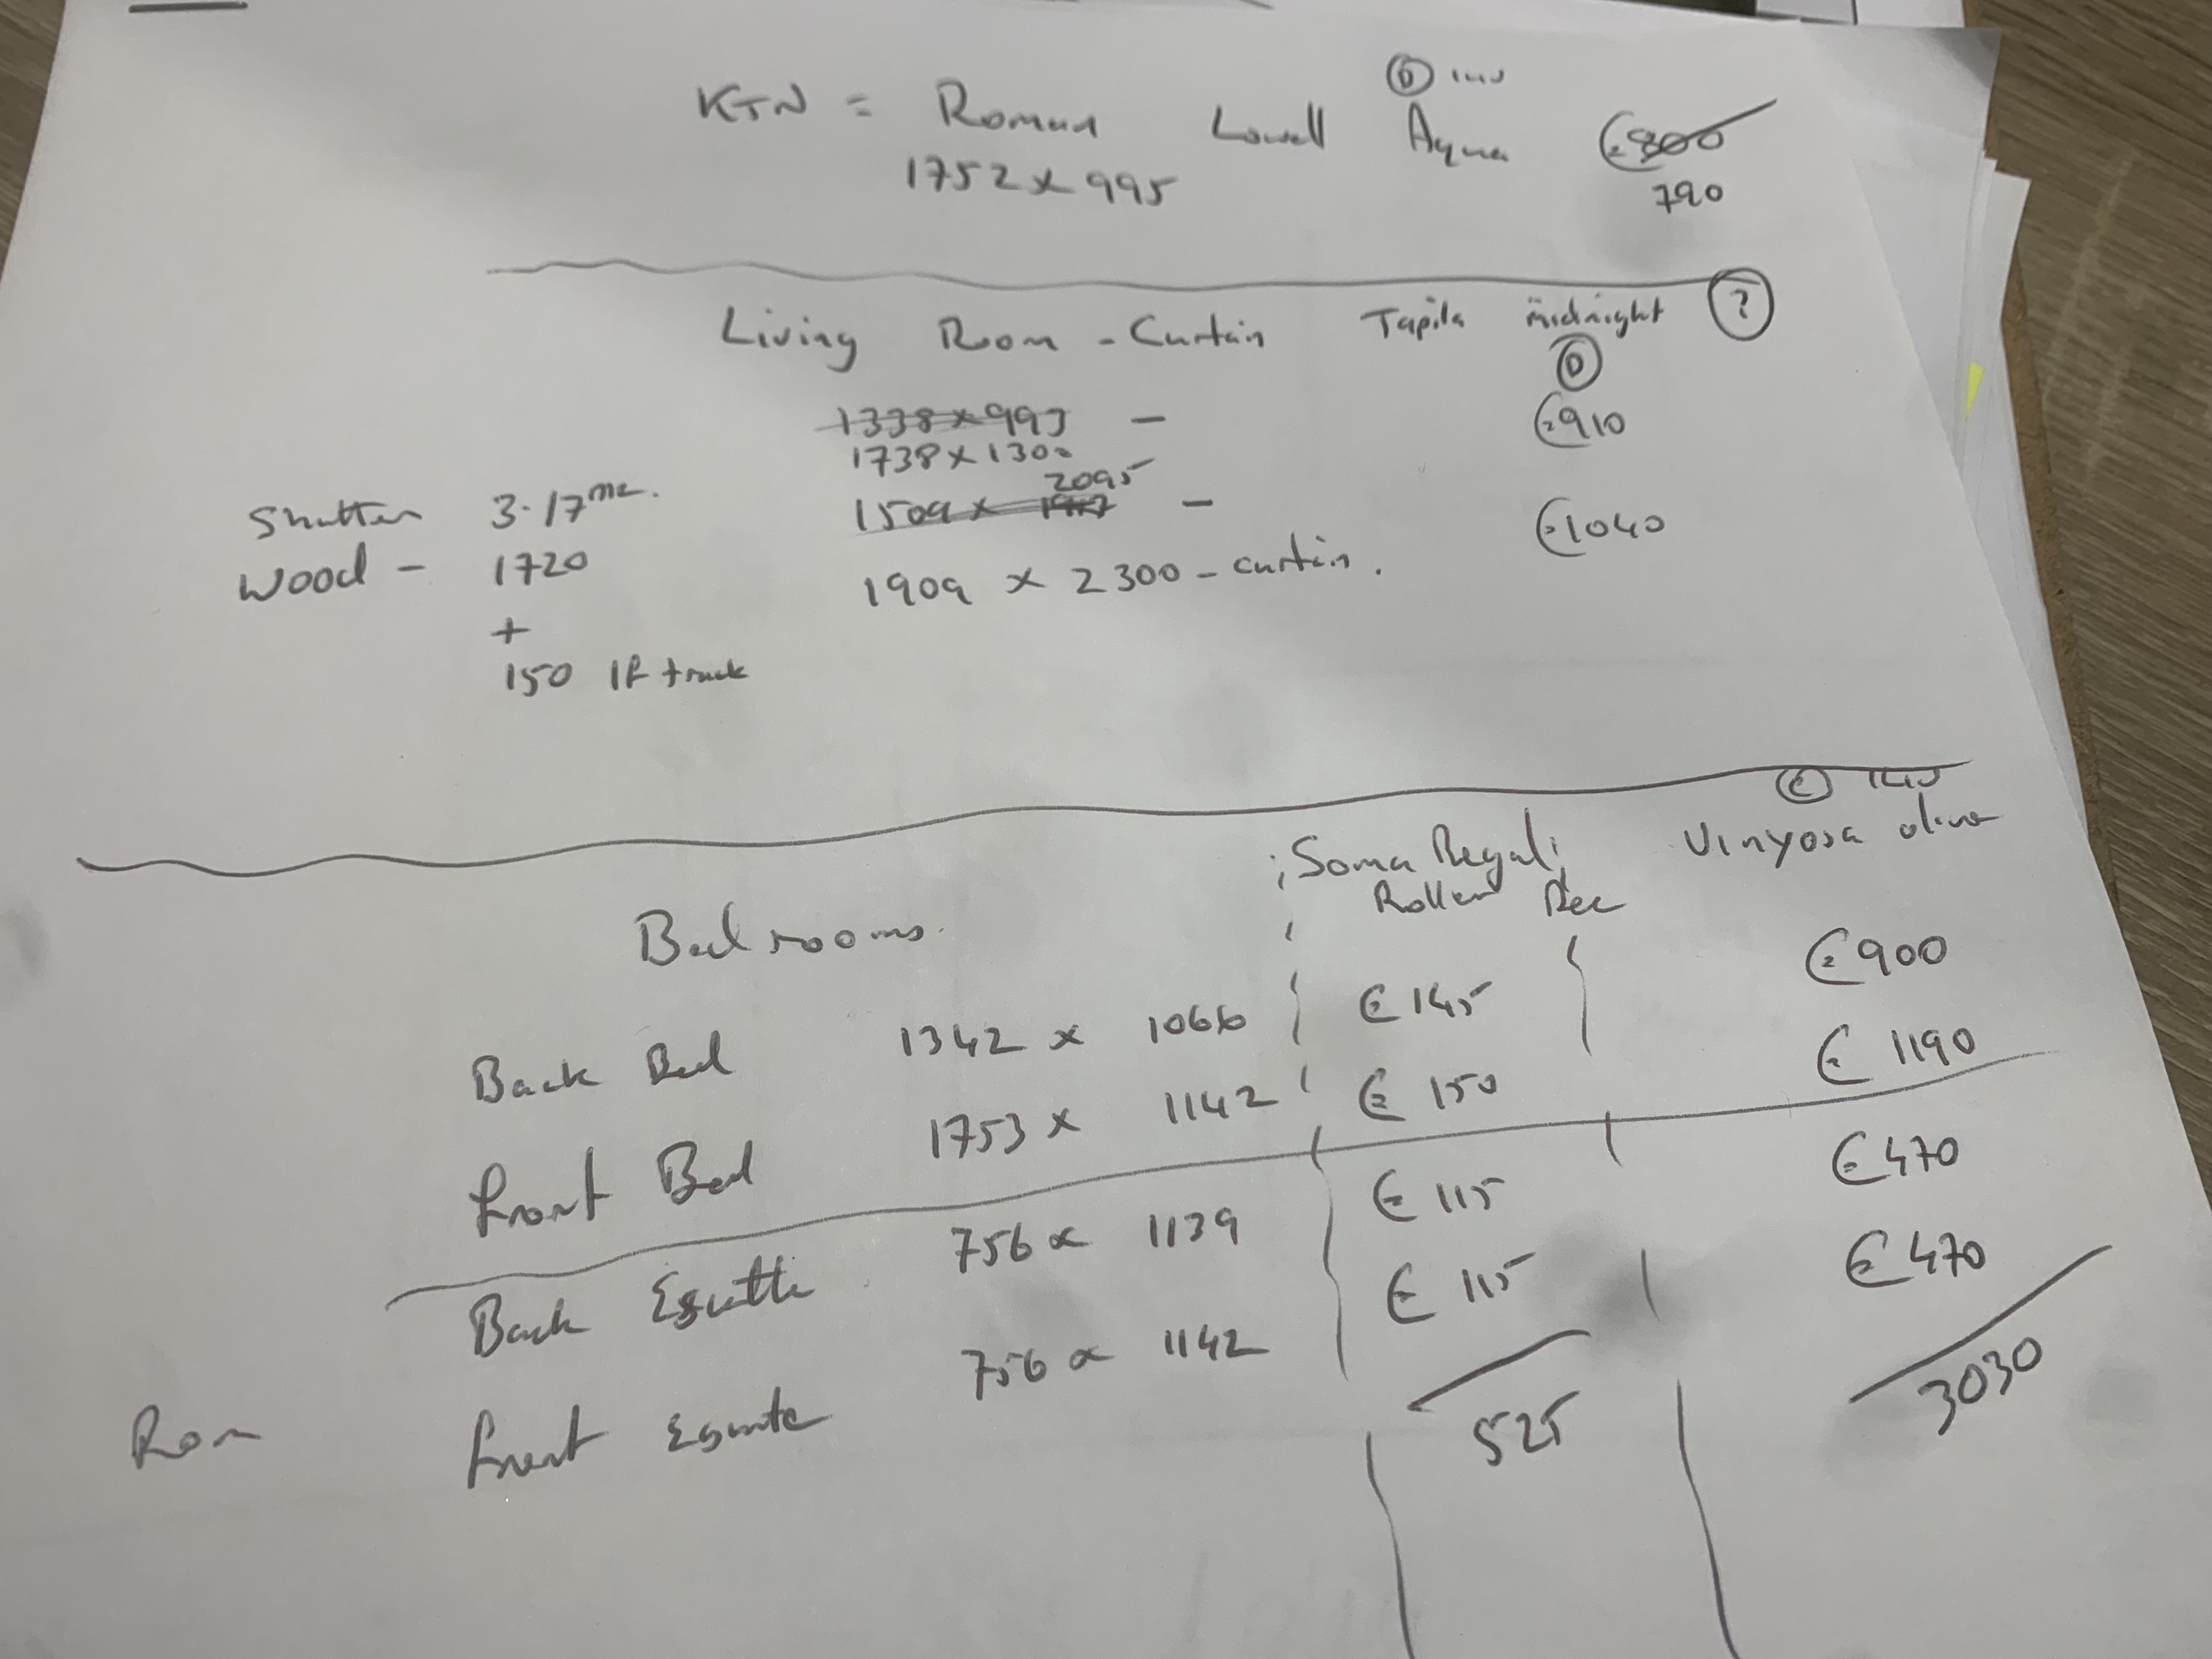 D
KTN = Roman Lowell Aqua €800
1752 x 995 790
Living Room - Curtain Tapila midnight ?
D
1338 x 993 - €910
1738 x 1300
2095
Shutter 3.17 m2. 1509 x - €1040
Wood - 1720 1909 x 2300 - curtain.
+
150 If track
Soma Regal Vinyosa
Roller Rec
Bedrooms.
Back Bed 1342 x 1066 € 145 €900
Front Bed 1753 x 1142 € 150 € 1190
Back 756 x 1139 € 115 €470
Front 756 x 1142 € 115 €470
525 3030